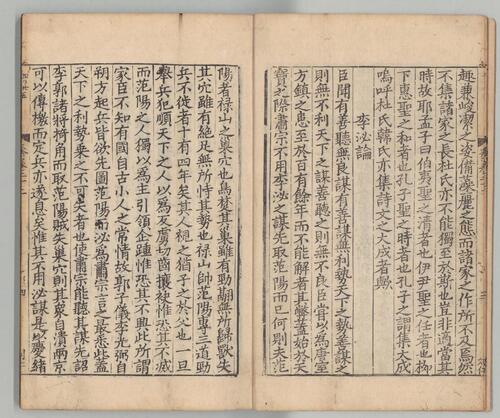 趣兼峻潔之姿備藻麗之態而諸家之作所不及焉然
不集諸家之長杜氏亦不能獨至於斯也豈非適當其
時故耶孟子曰伯夷聖之清者也伊尹聖之任者也柳
下惠聖之和者也孔子聖之時者也孔子之謂集大成
嗚呼杜氏韓氏亦集詩文之大成者歟
李泌論
臣聞有善聽無良謀有善謀無利勢天下之勢善謀之
則無不利天下之謀善聽之則無不良臣嘗以為唐室
方鎮之患至於百有餘年而不能解者其弊蓋始於天
寶之際肅宗不用李泌之謀先取范陽而已何則夫范
陽者祿山之巢穴也焚其巢雖有勁翮無所歸歟失
其穴雖有絕足無所恃其勢也祿山帥范陽專三道勁
兵不徙者十有四年矣其人視之猶子之於父也一旦
舉兵犯順天下之人以為天虜切齒攘袂惟恐其不滅
而范陽之人獨以為主引領企踵惟恐其不興此所謂
家臣不知有國自古小人之常情故郭子儀李光弼自
朔方起兵皆欲先圖范陽而泌為肅宗言之最悉此蓋
天下之利勢乘之不可失者也使肅宗能聽其謀先詔
李郭諸將掎角而取范陽賊失巢穴則其衆自潰兩京
可以傳檄而定兵亦遂息矣惟其不用泌謀是以慶緒